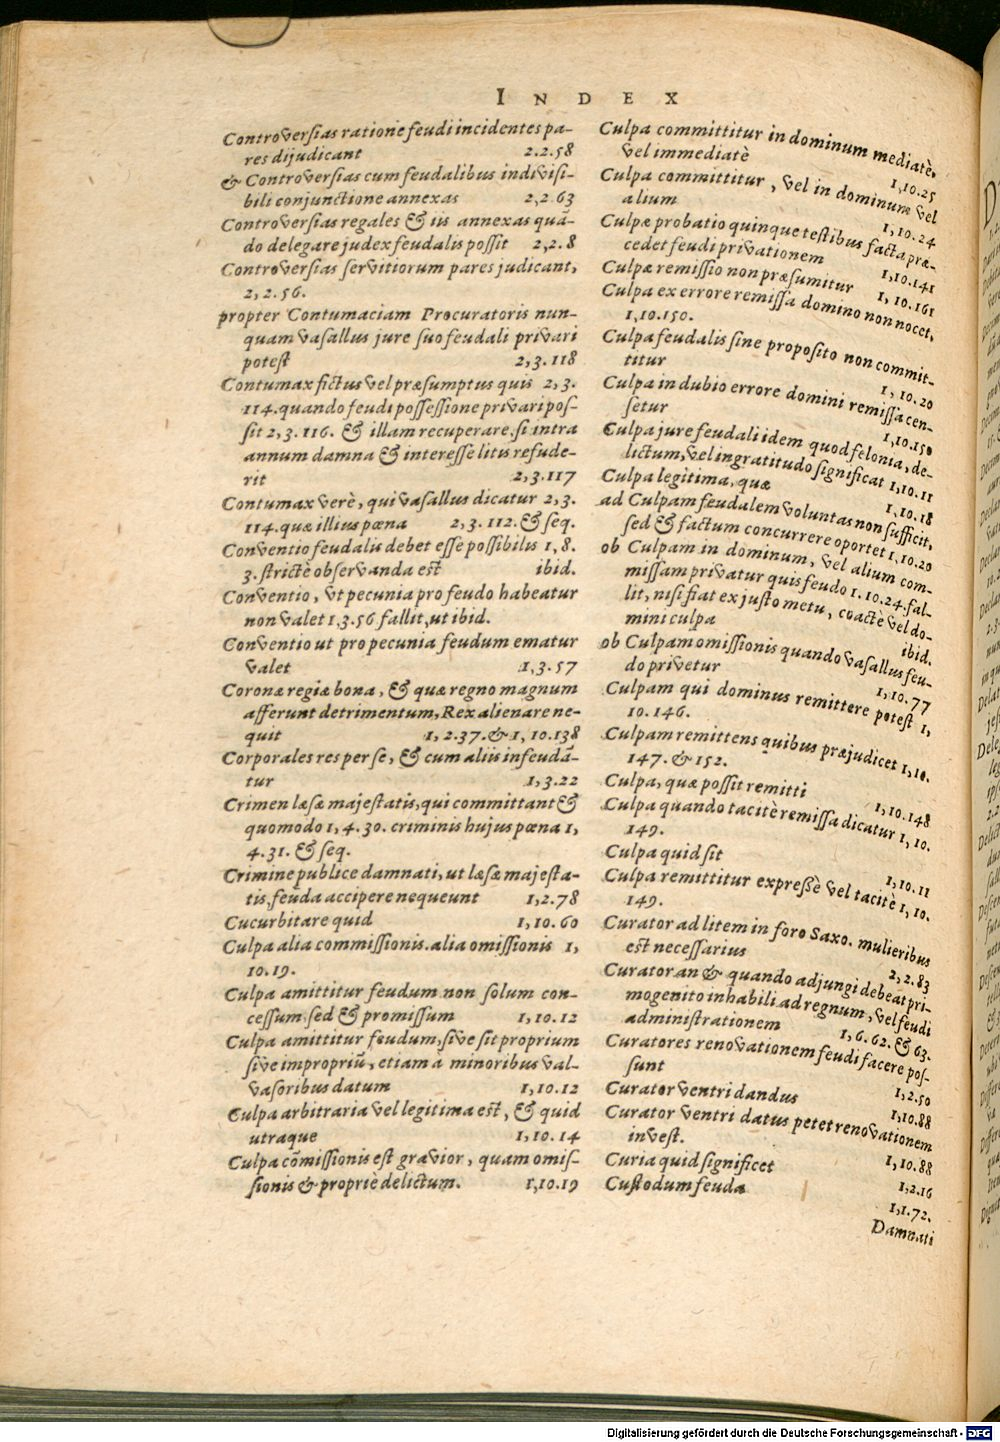 INDEX
Controversias ratione feudi incidentes pa-
res dijudicant 2.2.58
& Controversias cum feudalibus indivisi-
bili conjunctione annexas 2,2.63
Controversias regales & iis annexas quā-
do delegare judex feudalis possit 2,2.8
Controversias servitiorum pares judicant,
2,2.56.
propter Contumaciam Procuratoris nun-
quam vasallus jure suo feudali privari
potest 2,3.118
Contumax fictus vel præsumptus quis 2,3.
114. quando feudi possessione privari pos-
sit 2,3.116. & illam recuperare, si intra
annum damna & interesse litis refude-
rit 2,3.117
Contumax verè, qui vasallus dicatur 2,3.
114. quæ illius pœna 2,3.112. & seq.
Conventio feudalis debet esse possibilis 1,8.
3. strictè observanda est ibid.
Conventio, ut pecunia pro feudo habeatur
non valet 1,3.56 fallit, ut ibid.
Conventio ut pro pecunia feudum ematur
valet 1,3.57
Coronæ regiæ bona, & quæ regno magnum
afferunt detrimentum, Rex alienare ne-
quit 1,2.37. & 1,10.138
Corporales res per se, & cum aliis infeudā-
tur 1,3.22
Crimen læsæ majestatis, qui committant &
quomodo 1,4.30. criminis hujus pœna 1,
4.31. & seq.
Crimine publice damnati, ut læsæ majesta-
tis, feuda accipere nequeunt 1,2.78
Cucurbitare quid 1,10.60
Culpa alia commissionis. alia omissionis 1,
10.19.
Culpa amittitur feudum non solum con-
cessum, sed & promissum 1,10.12
Culpa amittitur feudum, sive sit proprium
sive impropriū, etiam à minoribus val-
vasoribus datum 1,10.12
Culpa arbitraria vel legitima est, & quid
utraque 1,10.14
Culpa cōmissionis est gravior, quam omis-
sionis & propriè delictum. 1,10.19
Culpa committitur in dominum mediatè,
vel immediatè 1,10.25
Culpa committitur, vel in dominum vel
alium 1,10.24
Culpæ probatio quinque testibus facta præ-
cedet feudi privationem 1,10.141
Culpæ remissio non præsumitur 1,10.161
Culpa ex errore remissa domino non nocet,
1,10.150.
Culpa feudalis sine proposito non commit-
titur 1,10.20
Culpa in dubio errore domini remissa cen-
setur 1,10.150
Culpa jure feudali idem quod felonia, de-
lictum, vel ingratitudo significat 1,10.11
Culpa legitima, quæ 1,10.18
ad Culpam feudalem voluntas non sufficit,
sed & factum concurrere oportet 1,10.20
ob Culpam in dominum, vel alium com-
missam privatur quis feudo 1.10.24. fal-
lit, nisi fiat ex justo metu, coactè vel do-
mini culpa ibid.
ob Culpam omissionis quando vasallus feu-
do privetur 1,10.77
Culpam qui dominus remittere potest 1,
10.146.
Culpam remittens quibus præjudicet 1,10.
147. & 152.
Culpa, quæ possit remitti 1,10.148
Culpa quando tacitè remissa dicatur 1,10.
149.
Culpa quid sit 1,10.11
Culpa remittitur expressè vel tacitè 1,10.
149.
Curator ad litem in foro Saxo. mulieribus
est necessarius 2,2.83
Curator an & quando adjungi debeat pri-
mogenito inhabili ad regnum, vel feudi
administrationem 1,6.62. & 63.
Curatores renovationem feudi facere pos-
sunt 1,2.50
Curator ventri dandus 1,10.88
Curator ventri datus petet renovationem
invest. 1,10.88
Curia quid significet 1,2.16
Custodum feuda 1,1.72.
Damnati
Digitalisierung gefördert durch die Deutsche Forschungsgemeinschaft - DFG